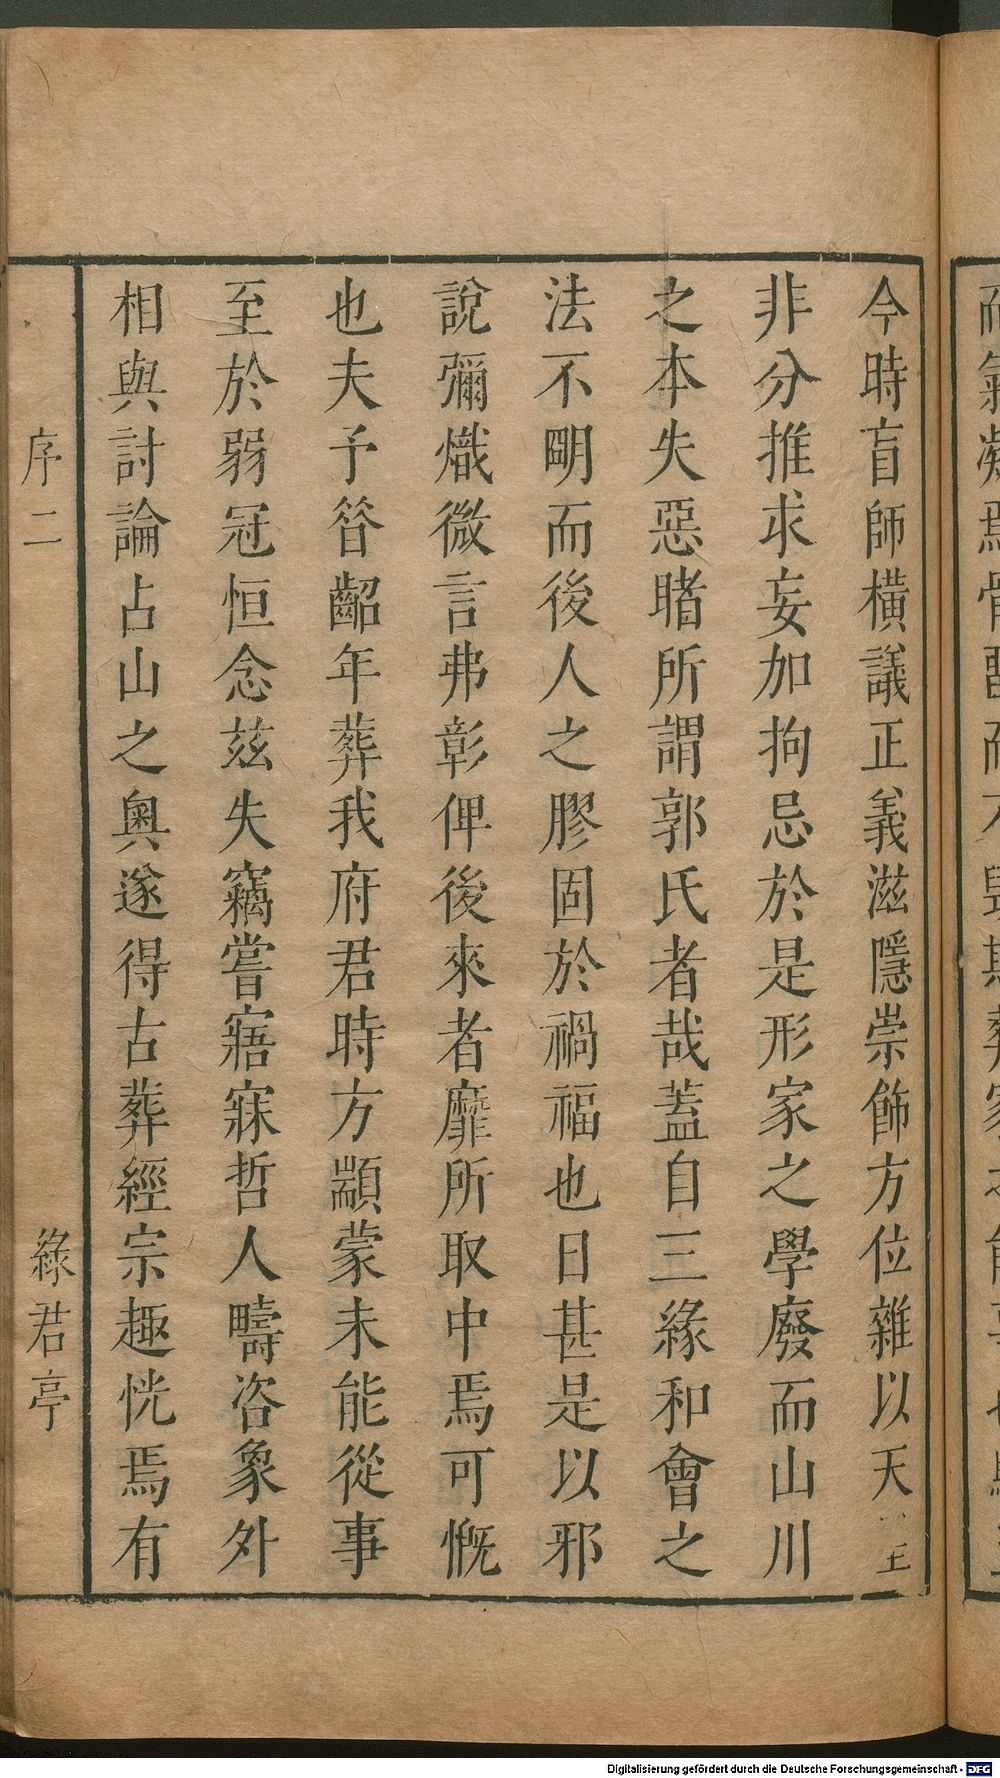 今時盲師橫議正義滋隱崇飾方位雜以天
非分推求妄加拘忌於是形家之學廢而山川
之本失惡睹所謂郭氏者哉蓋自三緣和會之
法不明而後人之膠固於禍福也日甚是以邪
說彌熾微言弗彰俾後來者靡所取中焉可慨
也夫予昝齠年葬我府君時方顓蒙未能從事
至於弱冠恒念茲失竊嘗寤寐哲人疇咨象外
相與討論占山之奧遂得古葬經宗趣恍焉有
序二
綠君亭
Digitalisierung gefördert durch die Deutsche Forschungsgemeinschaft - DFG